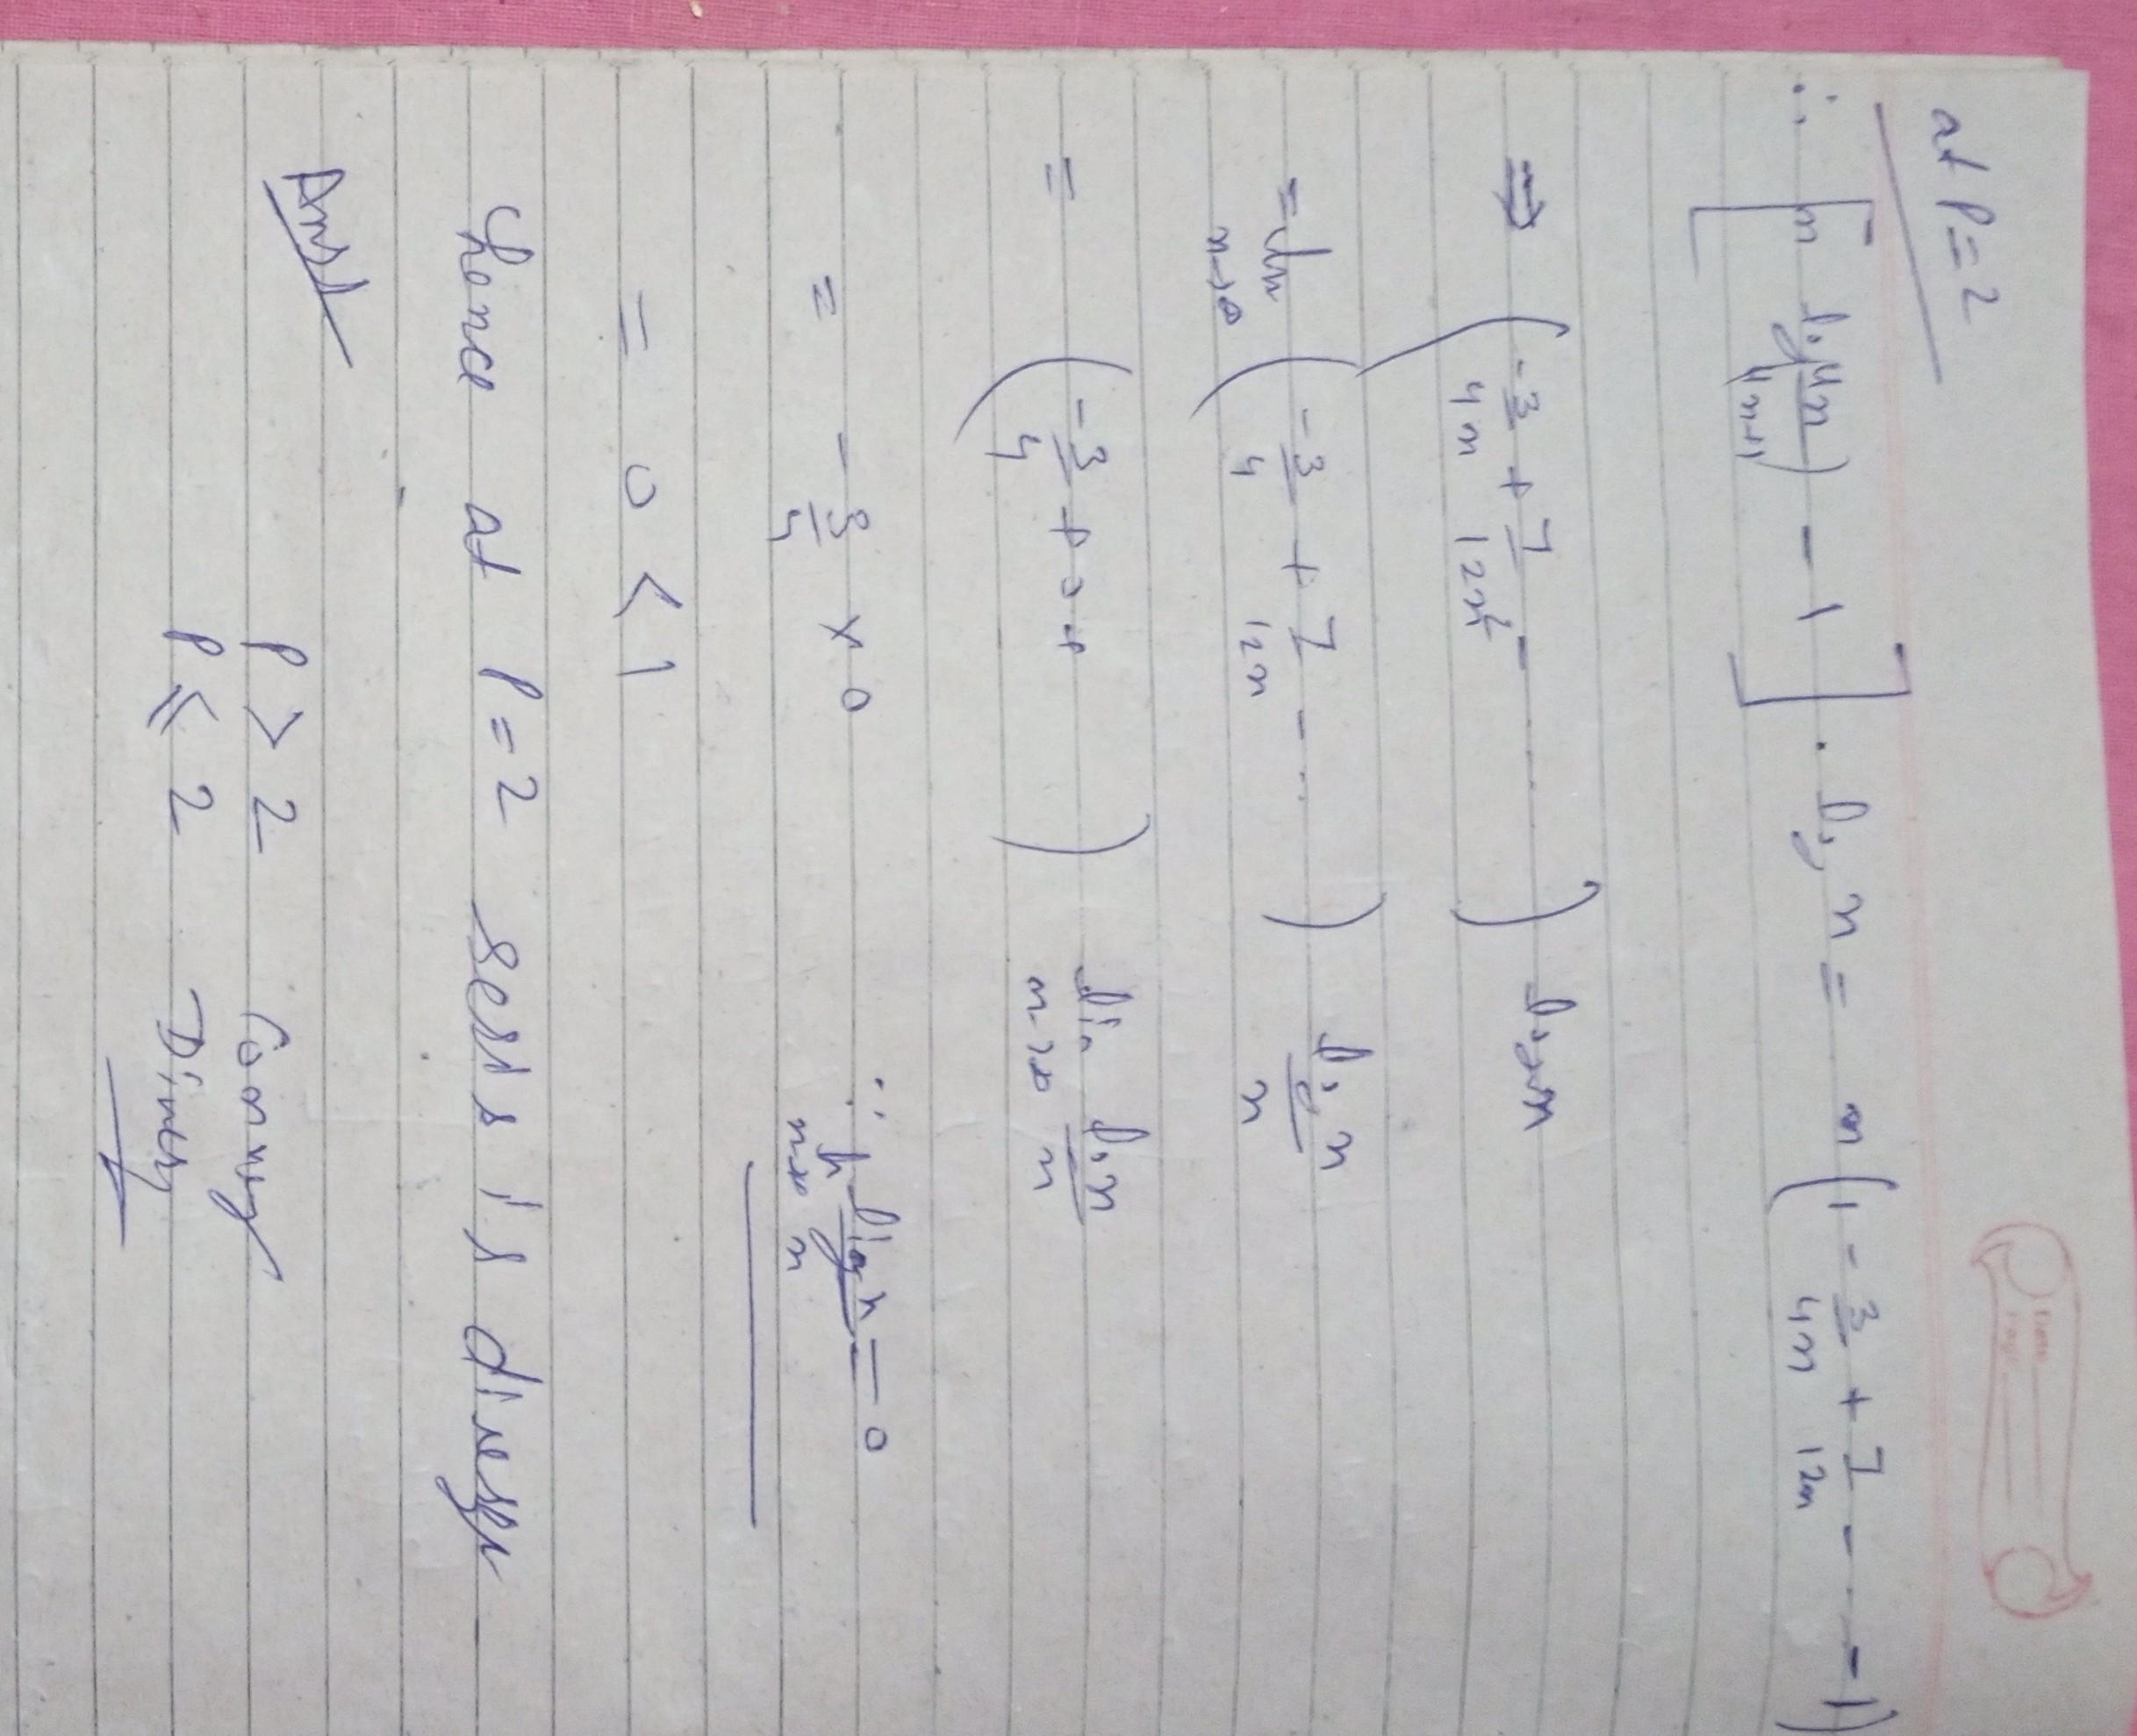 at P=2
∴ [n log(4n/4n+1) - 1] . log n = n(1 - 3/4n + 7/12n - . - -1)
⇒ (-3/4n + 7/12n² - - - .) log n
= lim n→∞ (-3/4 + 7/12n - - ..) log n/n
= (-3/4 + 0 + ) lim n→∞ log n/n
= - 3/4 × 0 ∵ lim n→∞ log n/n = 0
= 0 < 1
hence at P=2 series is diverges
Ans
P > 2 Converg
P ≤ 2 Diverg